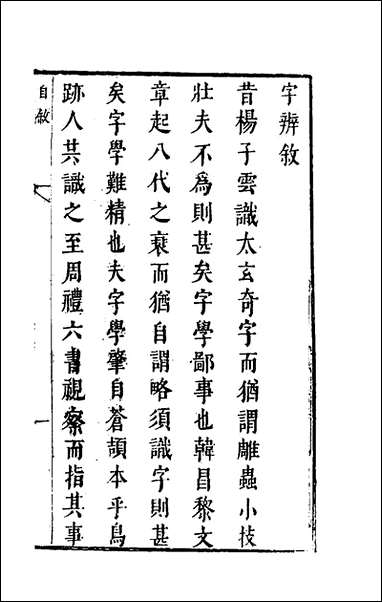 字辨敘
昔楊子雲識太玄奇字而猶謂雕蟲小技
壯夫不為則甚矣字學鄙事也韓昌黎文
章起八代之衰而猶自謂略須識字則甚
矣字學難精也夫字學肇自蒼頡本乎鳥
跡人共識之至周禮六書視察而指其事
自敘
一